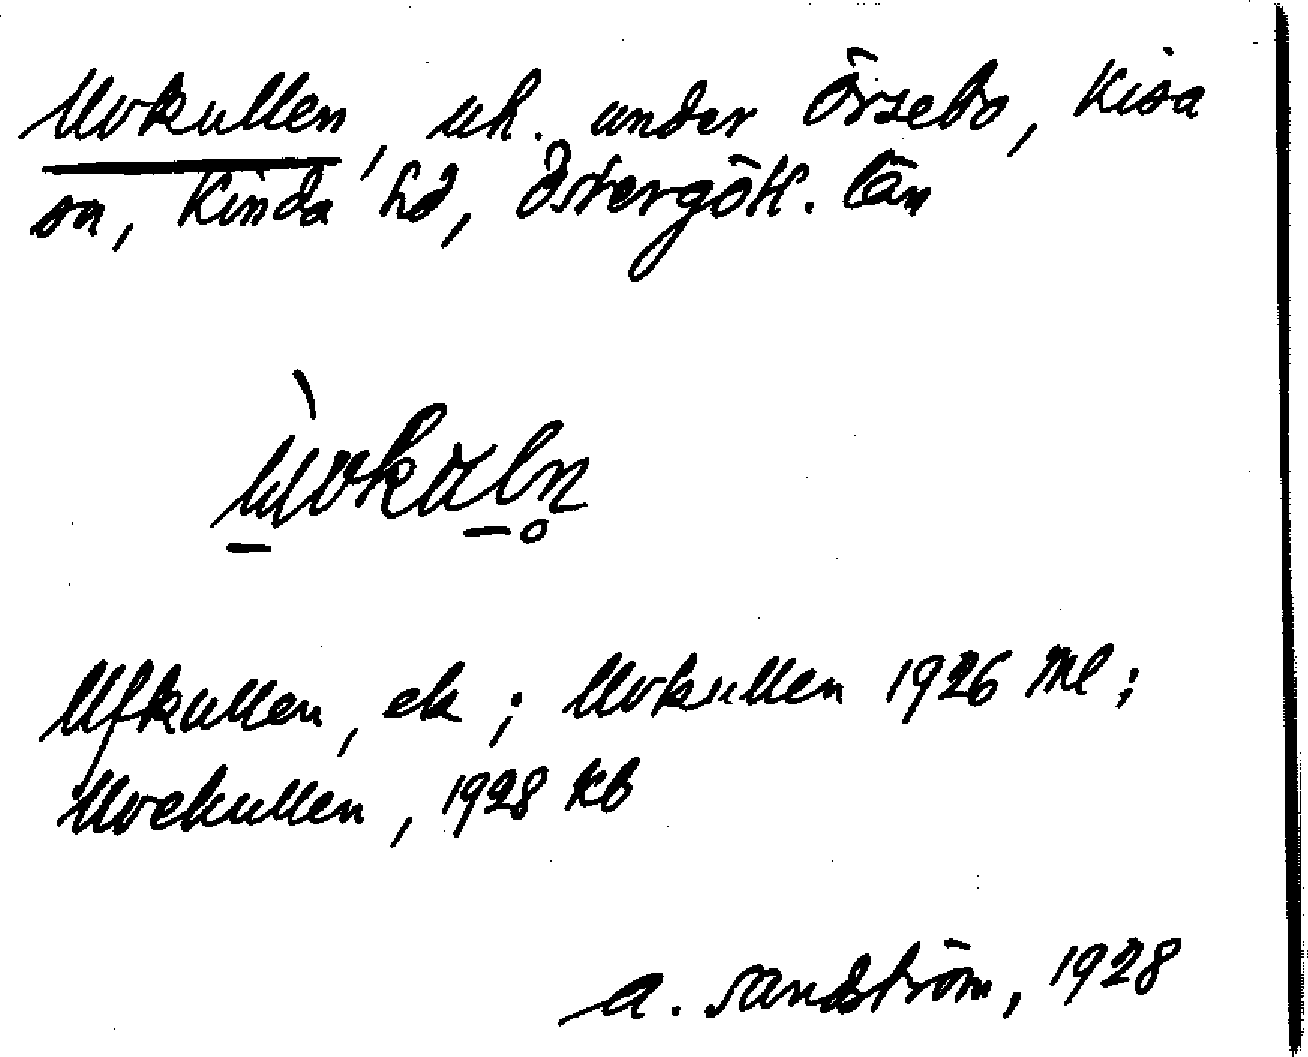 Uvkullen, uh. under Örsebo, Kisa
sn, Kinda hd, Östergötl. län
Ufkullen, ek; Uvkullen 1926 Ml;
Uvekullen, 1928 kb
A. Sandström, 1928